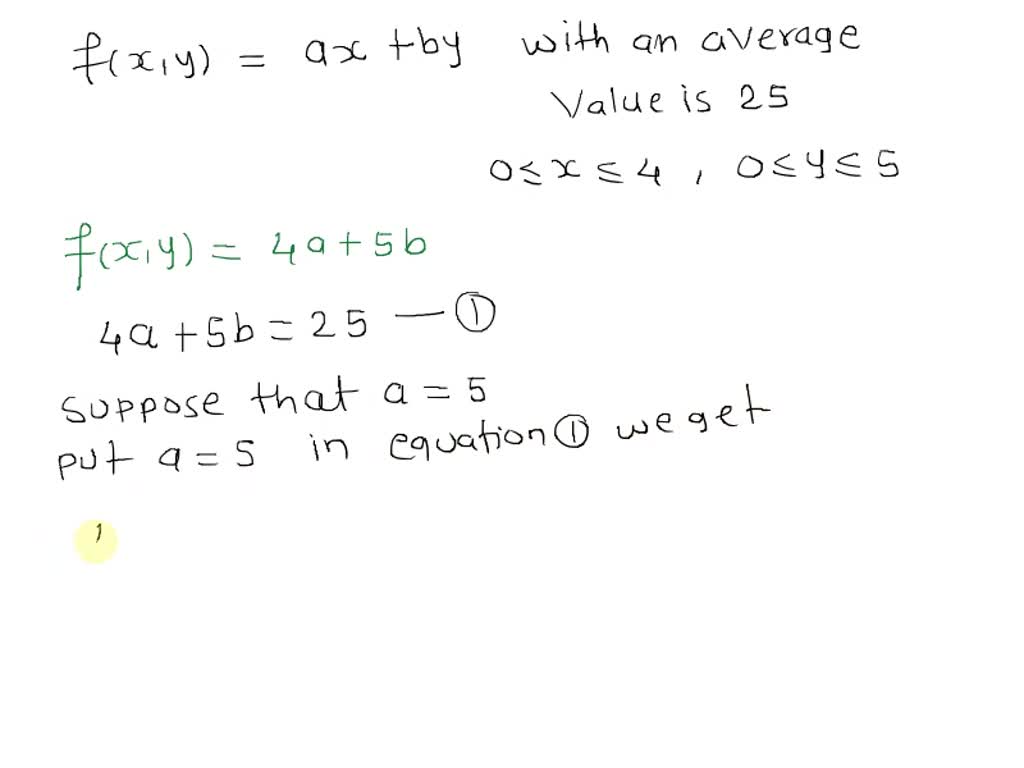 f(x,y) = ax + by with an average
Value is 25
0 ≤ x ≤ 4 , 0 ≤ y ≤ 5
f(x,y) = 4a + 5b
4a + 5b = 25 — ①
suppose that a = 5
put a = 5 in equation ① we get